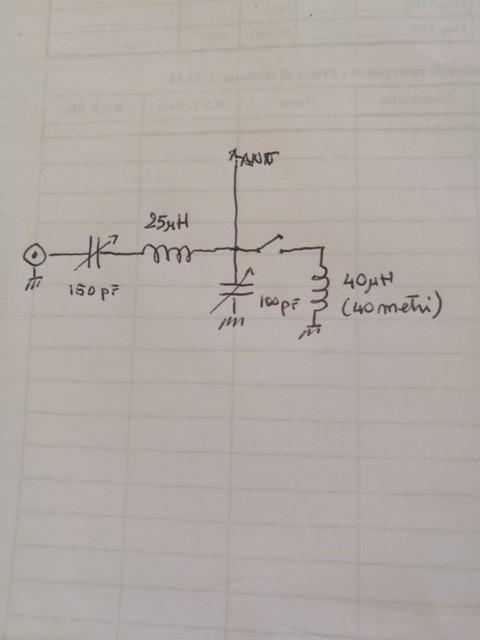 ANT
25μH
150 pF
100 pF
40μH
(40 metri)